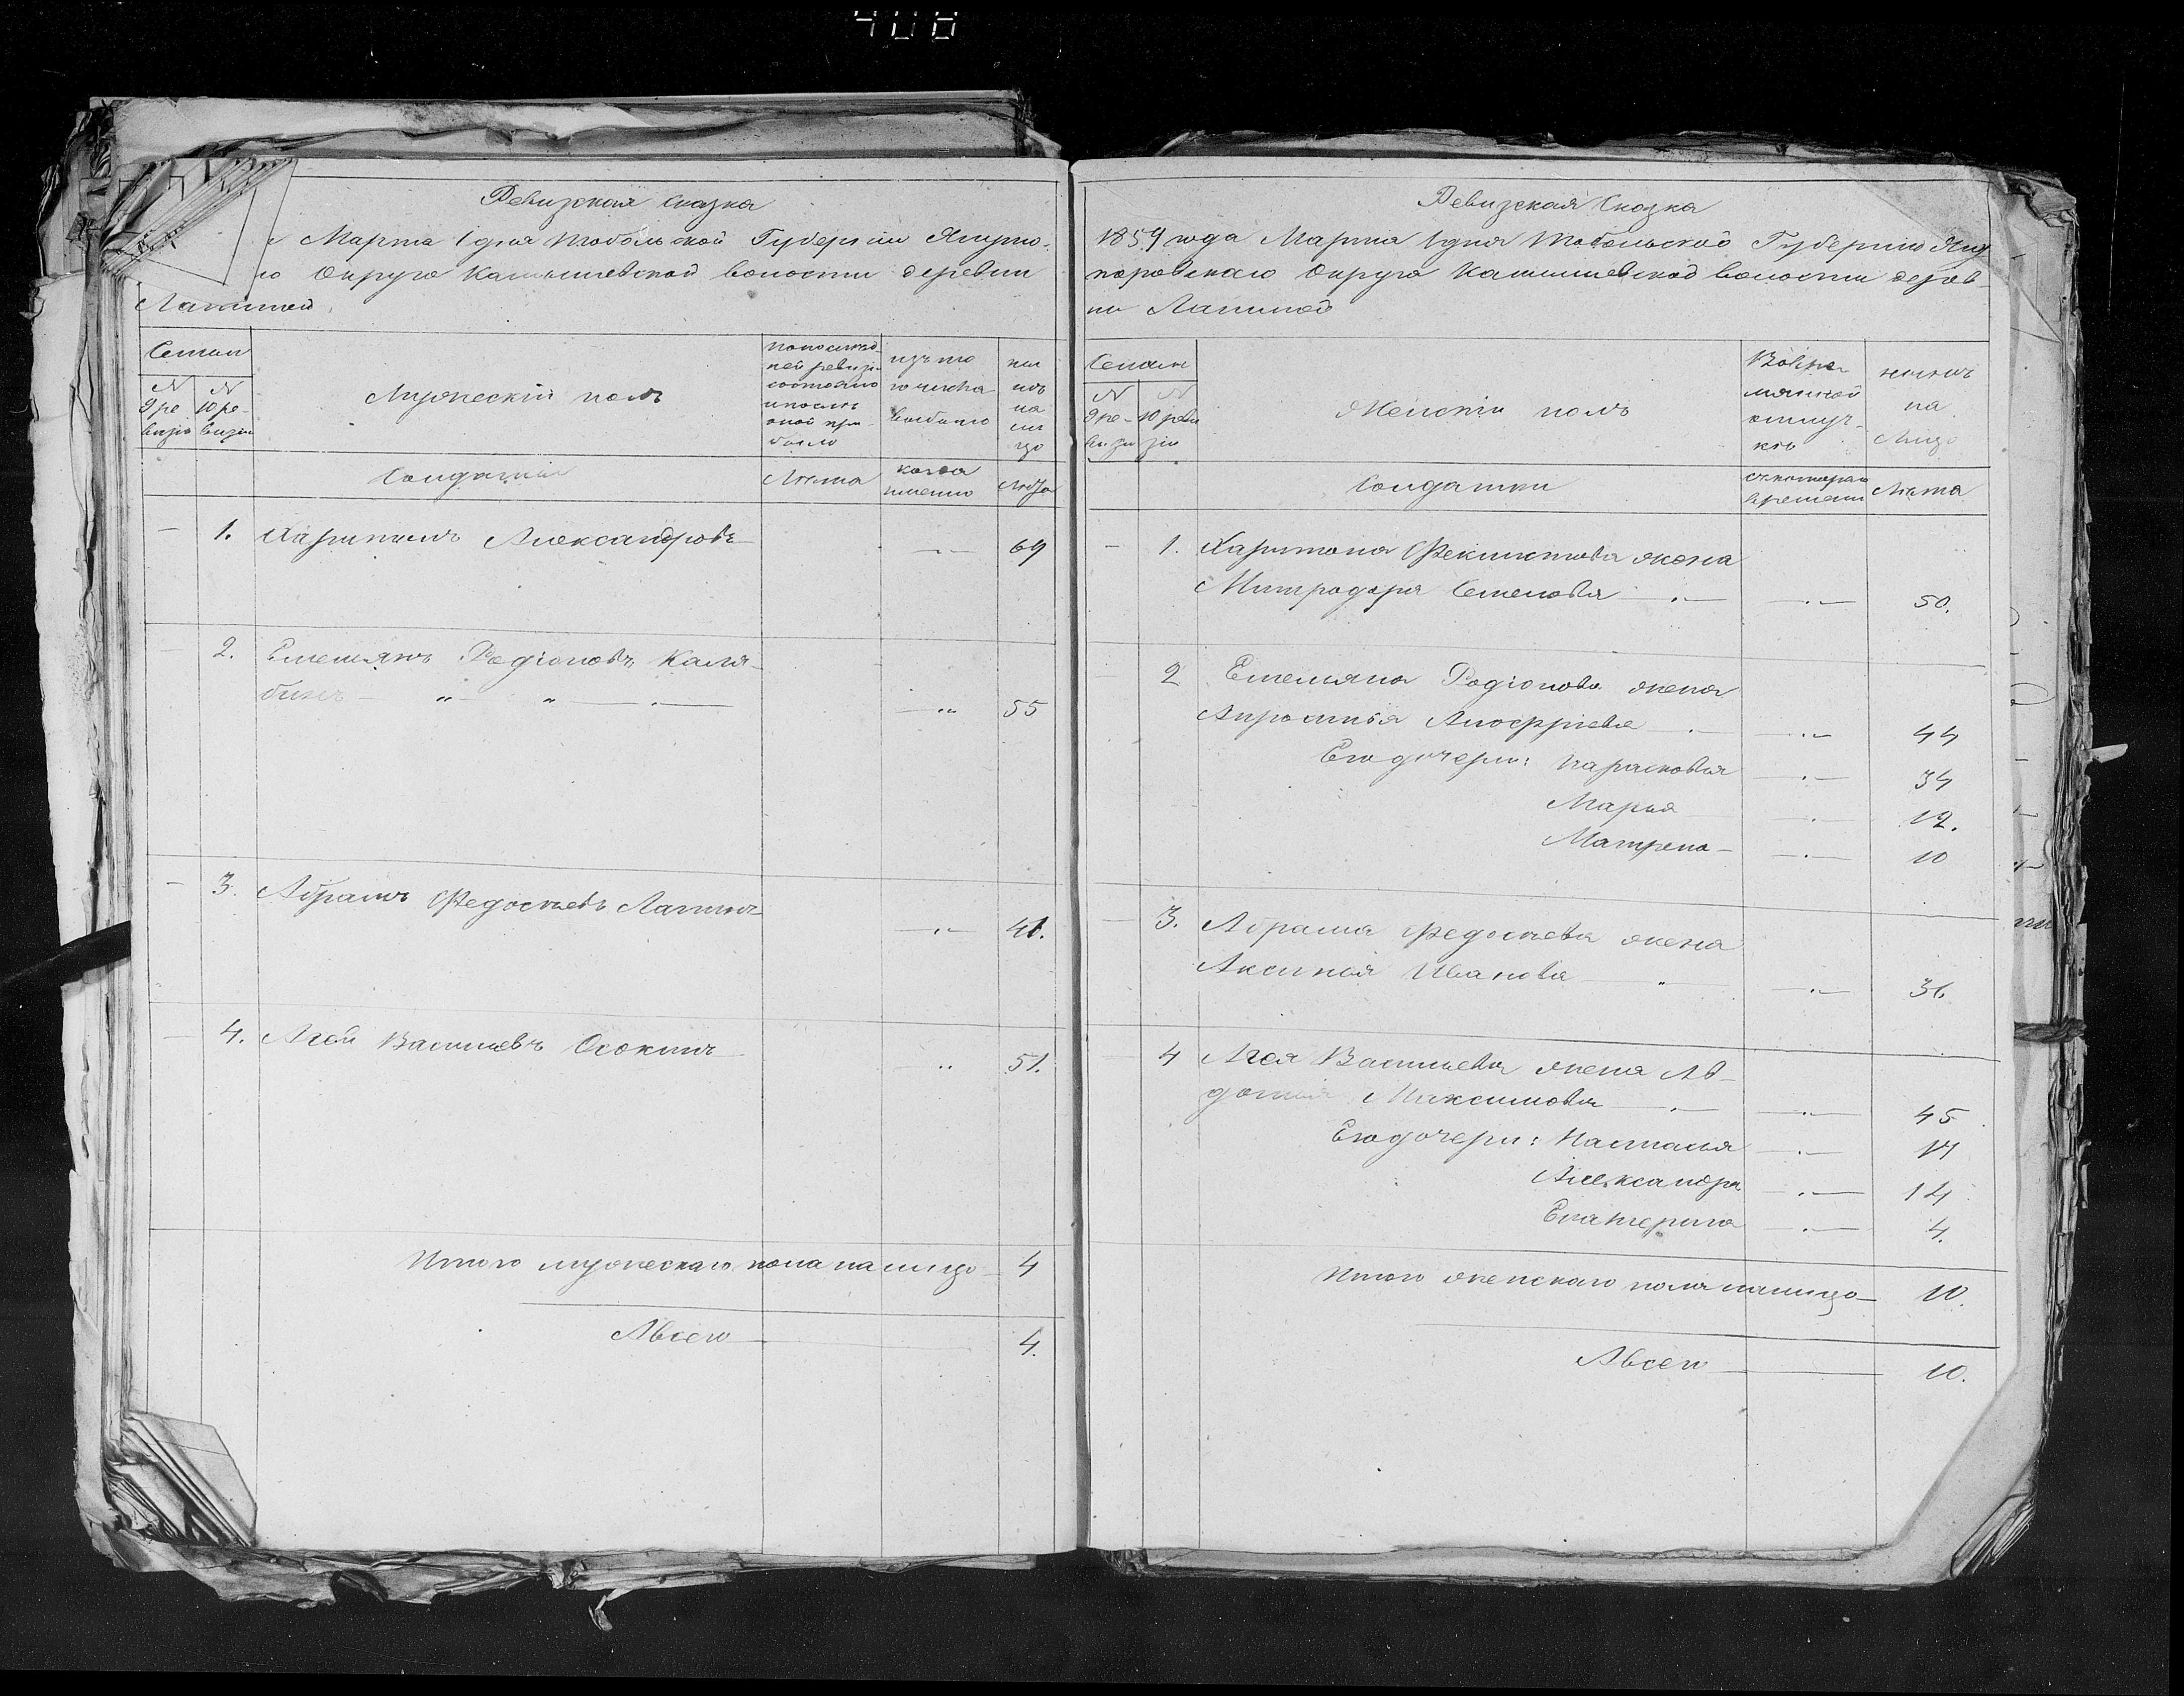 408
Ревизская Сказка
Марта 1 дня Тобольской Губерніи Ялуто-
го Округа Камышевской волости деревни
Лапиной
Семьи
№ 9 ре визіи
№ 10 ре- визіи
Мужескій полъ
По послѣд- ней ревизіи состояло и послѣ оной при- было
изъ то го числа выбыло
ны нѣ на ли цо
Солдаты
Лѣта
когда именно
Лѣта
1. Харитонъ Александровъ 69
2. Емельянъ Родіоновъ Каля-
бинъ 55
3. Абрамъ Федосѣевъ Лапинъ
41.
4. Агей Васильевъ Осокинъ
51.
Итого мужескаго пола на лицо 4
А всего 4.
Ревизская Сказка
1859 года Марта 1 дня Тобольской Губерніи Ялу
торовскаго Округа Камышевской волости дерев
ни Лапиной
Семьи
№ 9 ре- визіи
№ 10 реви зіи
Женскій полъ
Во вре- мянной отлуч- кѣ
нынѣ на Лицо
Солдатки
съ котораго времени
Лѣта
1. Харитона Феклистова жена
Митродора Семенова 50.
2 Емельяна Родіонова жена
44
Его дочери: Парасковья 34
Марья 12.
Матрена 10
3. Абрама Федосѣева жена
Аксинья Иванова 36
4 Агея Васильева жена Ав-
дотья Максимова 45
Его дочери: Настасья 17
Александра 14
Екатерина 4.
Итого женскаго пола на лицо 10.
А всего 10.